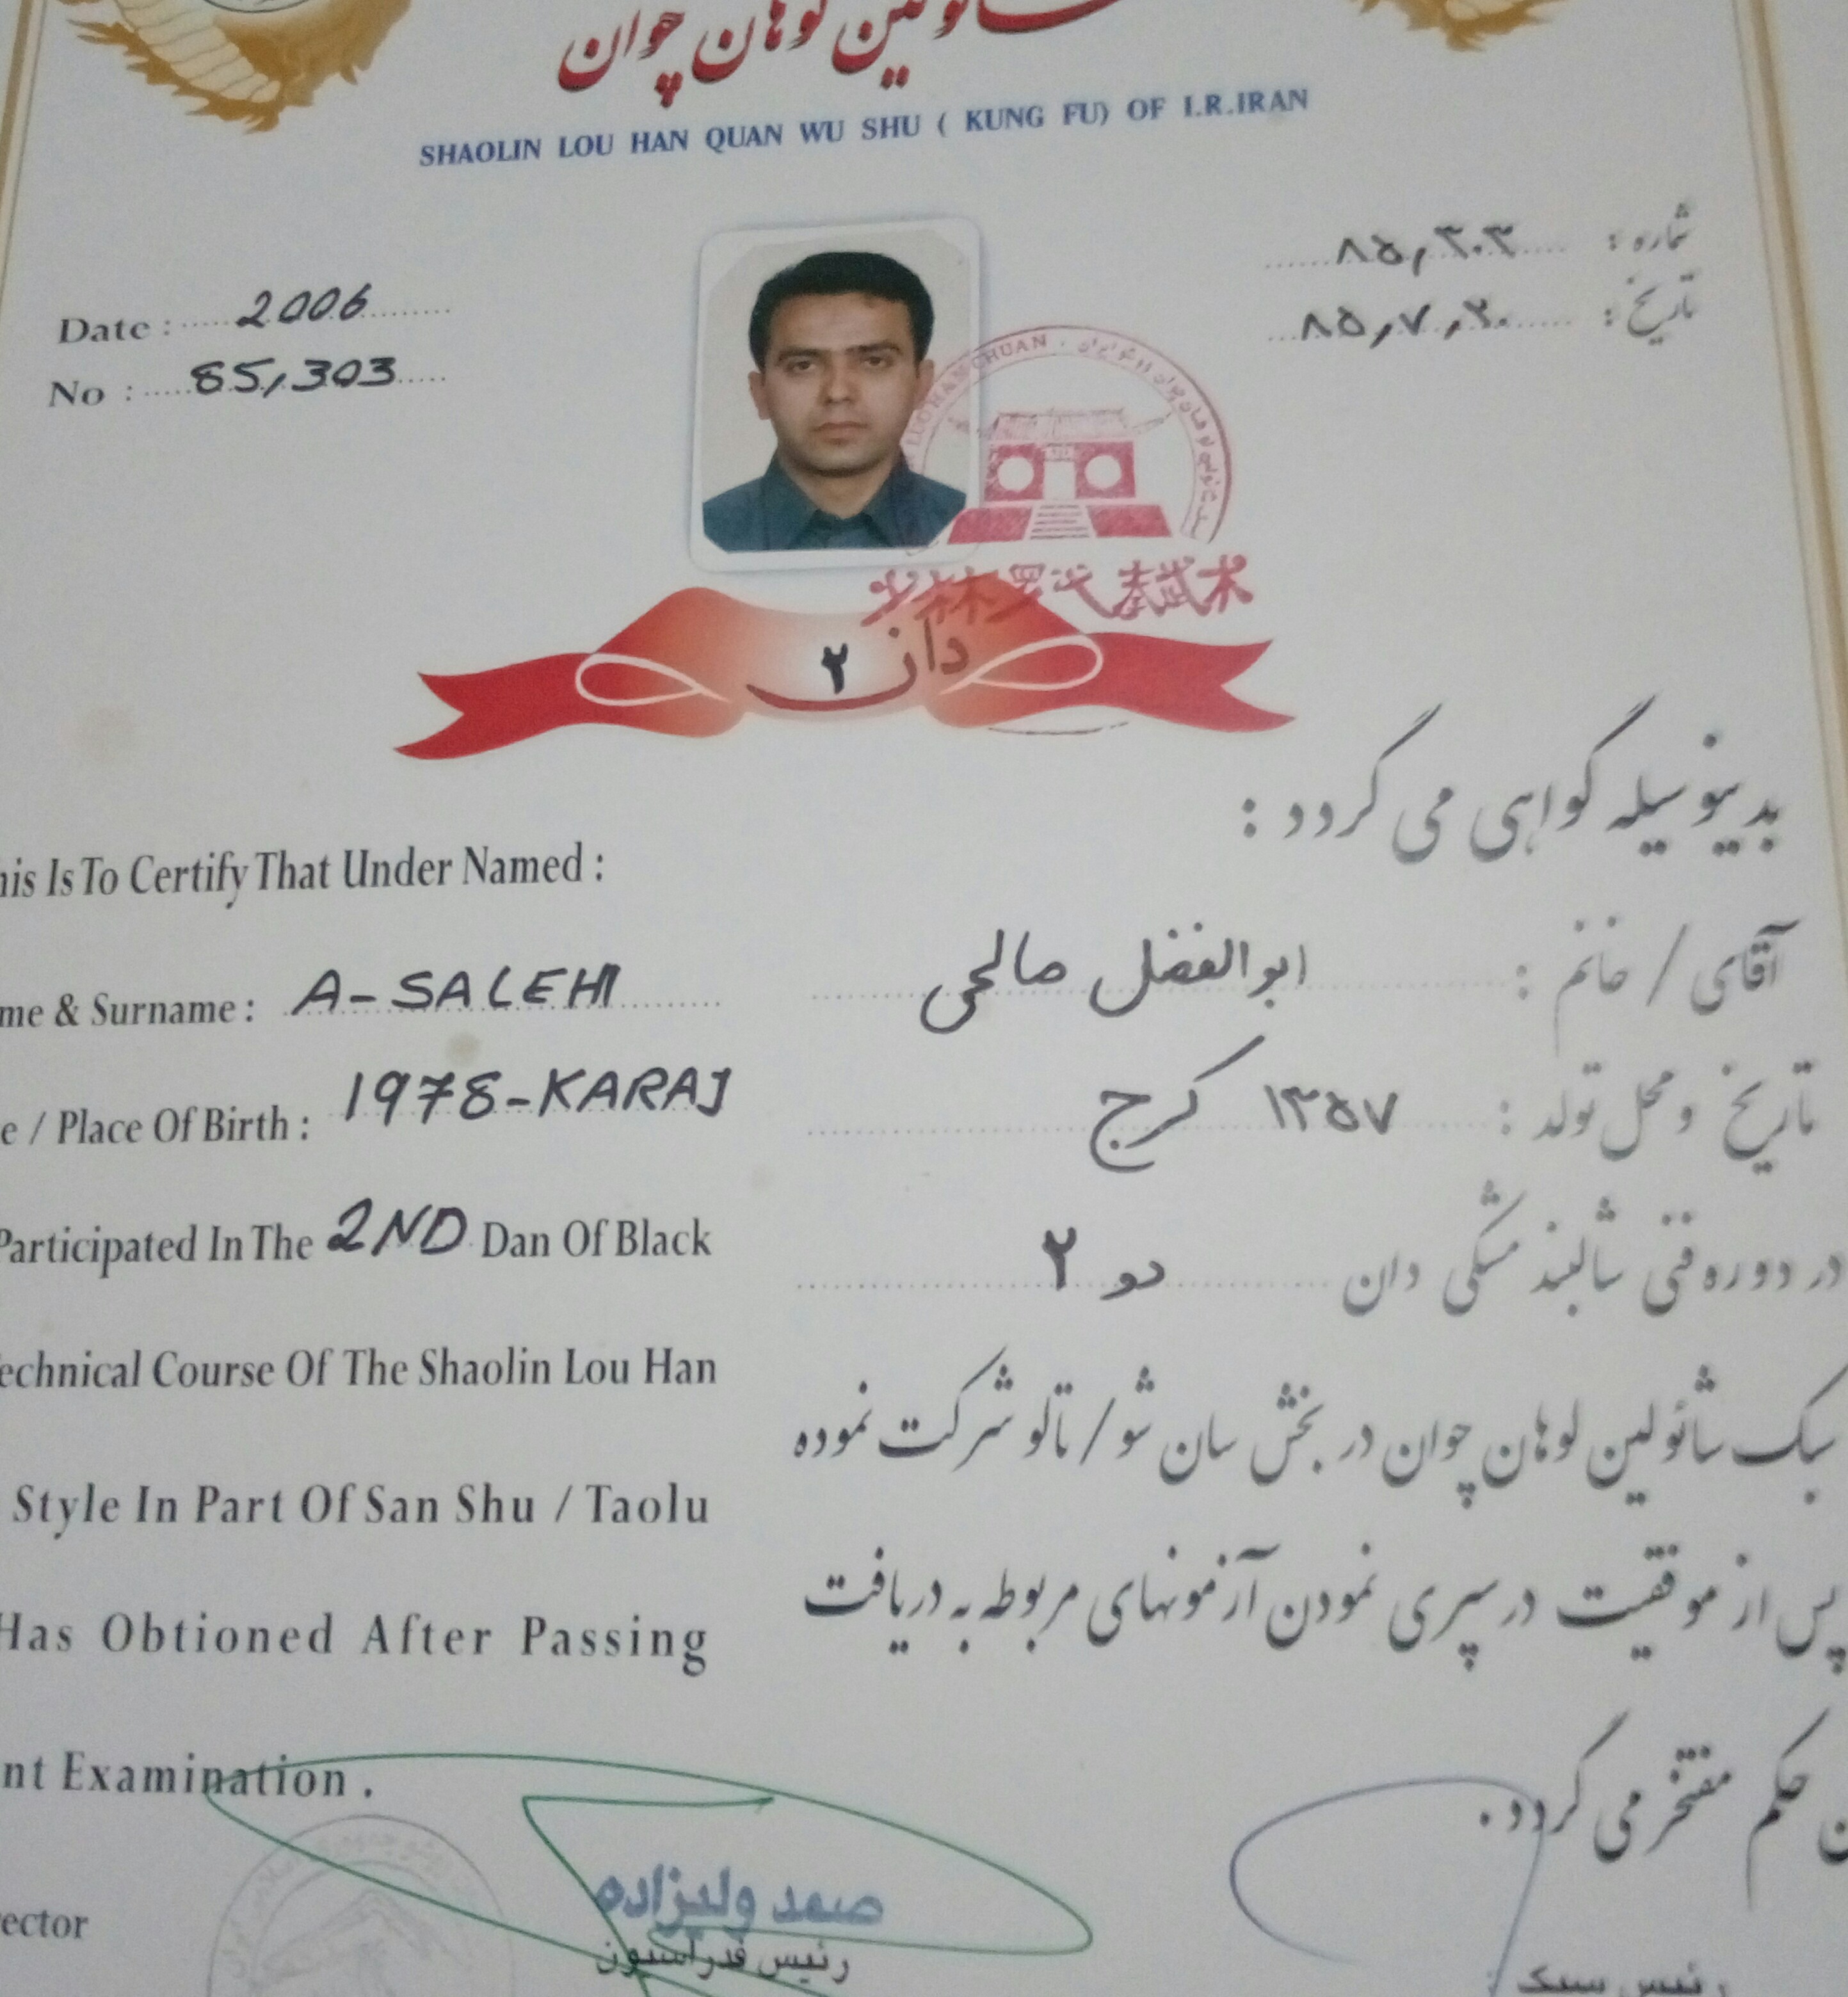 لوهان چوان
SHAOLIN LOU HAN QUAN WU SHU ( KUNG FU) OF I.R.IRAN
شماره : ۸۵,۳۰۳
تاریخ : ۸۵,۷,۳۰
Date : 2006
No : 85,303
LUO HAN CHUAN
武术
دان ۲
بدینوسیله گواهی می گردد :
his Is To Certify That Under Named :
آقای / خانم : ابوالفضل صالحی
me & Surname : A-SALEHI
تاریخ و محل تولد : ۱۳۵۷ کرج
e / Place Of Birth : 1978-KARAJ
در دوره فنی شالبند مشکی دان دو ۲
Participated In The 2ND Dan Of Black
سبک شائولین لوهان چوان در بخش سان شو / تالو شرکت نموده
echnical Course Of The Shaolin Lou Han
Style In Part Of San Shu / Taolu
پس از موفقیت در سپری نمودن آزمونهای مربوطه به دریافت
Has Obtioned After Passing
ن حکم مفتخر می گردد.
nt Examination .
صمد ولیزاده
رئیس فدراسیون
ector
رئیس سبک